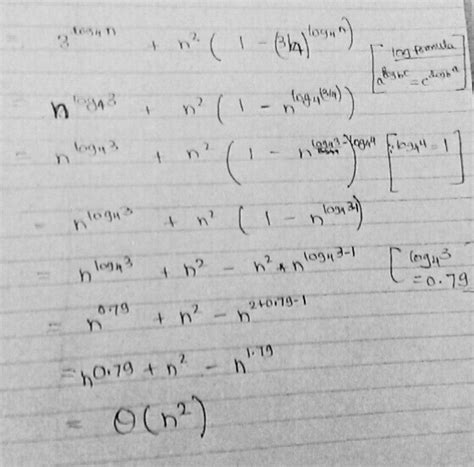 = 3^log₄n + n² ( 1 - (3/4)^log₄n ) [ log formula
a^logbc = c^logba
n^log₄3 + n² ( 1 - n^log₄(3/4) )
= n^log₄3 + n² ( 1 - n^log₄3-log₄4 ) [ ∵ log₄4 = 1 ]
= n^log₄3 + n² ( 1 - n^log₄3-1 )
= n^log₄3 + n² - n² * n^log₄3-1 [ log₄3
= 0.79
= n^0.79 + n² - n^2+0.79-1
= n^0.79 + n² - n^1.79
= Θ(n²)